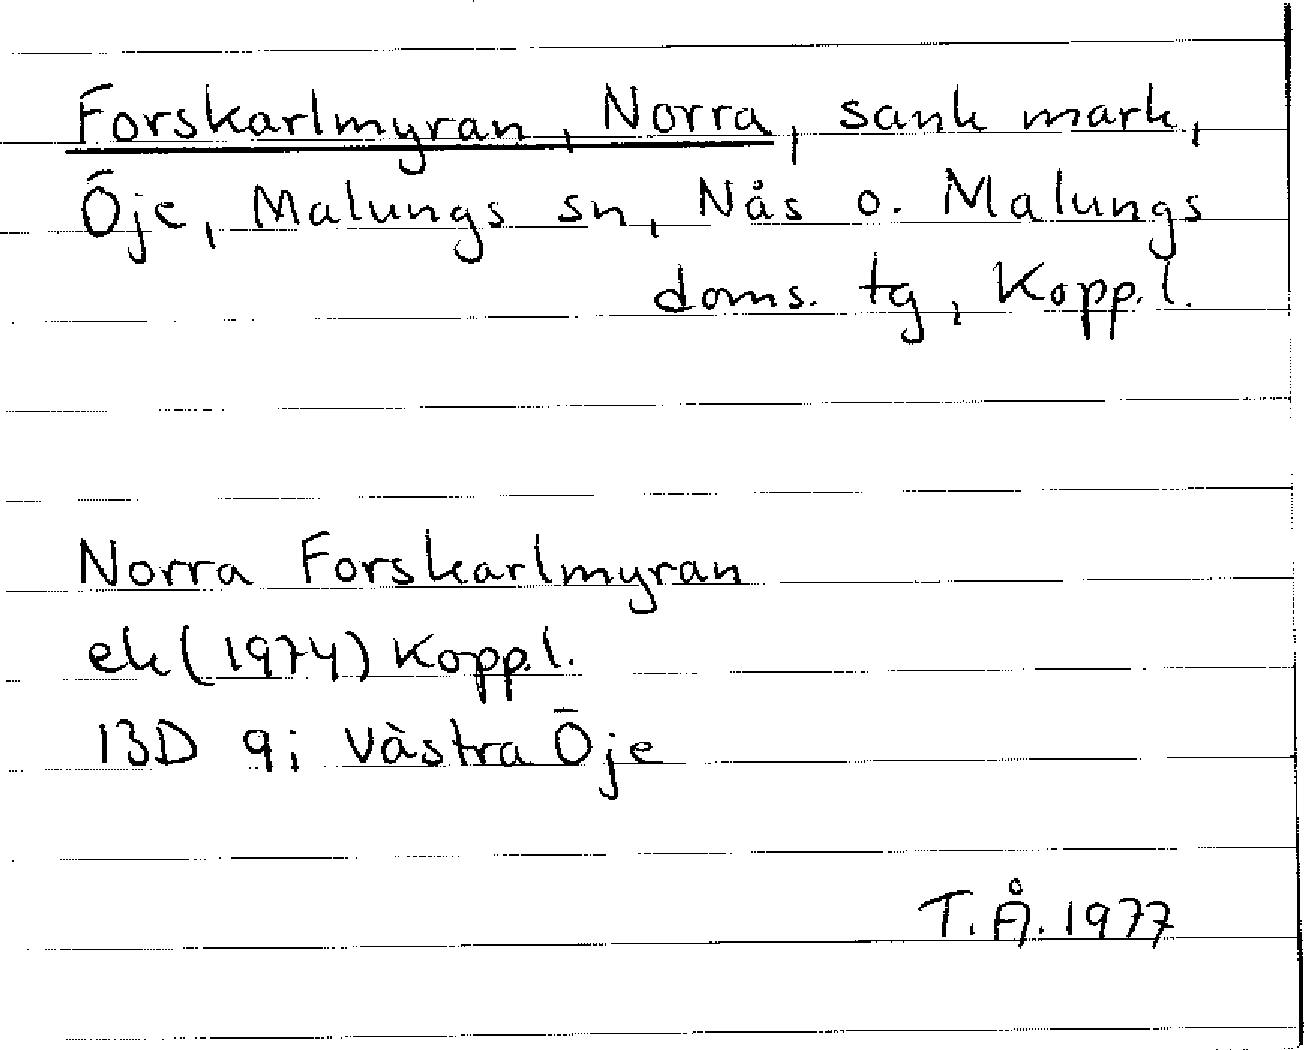 Forskarlmyran, Norra, sank mark,
Öje, Malungs sn, Nås o. Malungs
doms. tg, Kopp. l.
Norra Forskarlmyran
ek (1974) Kopp. l.
13D 9i Västra Öje
T. Å. 1977